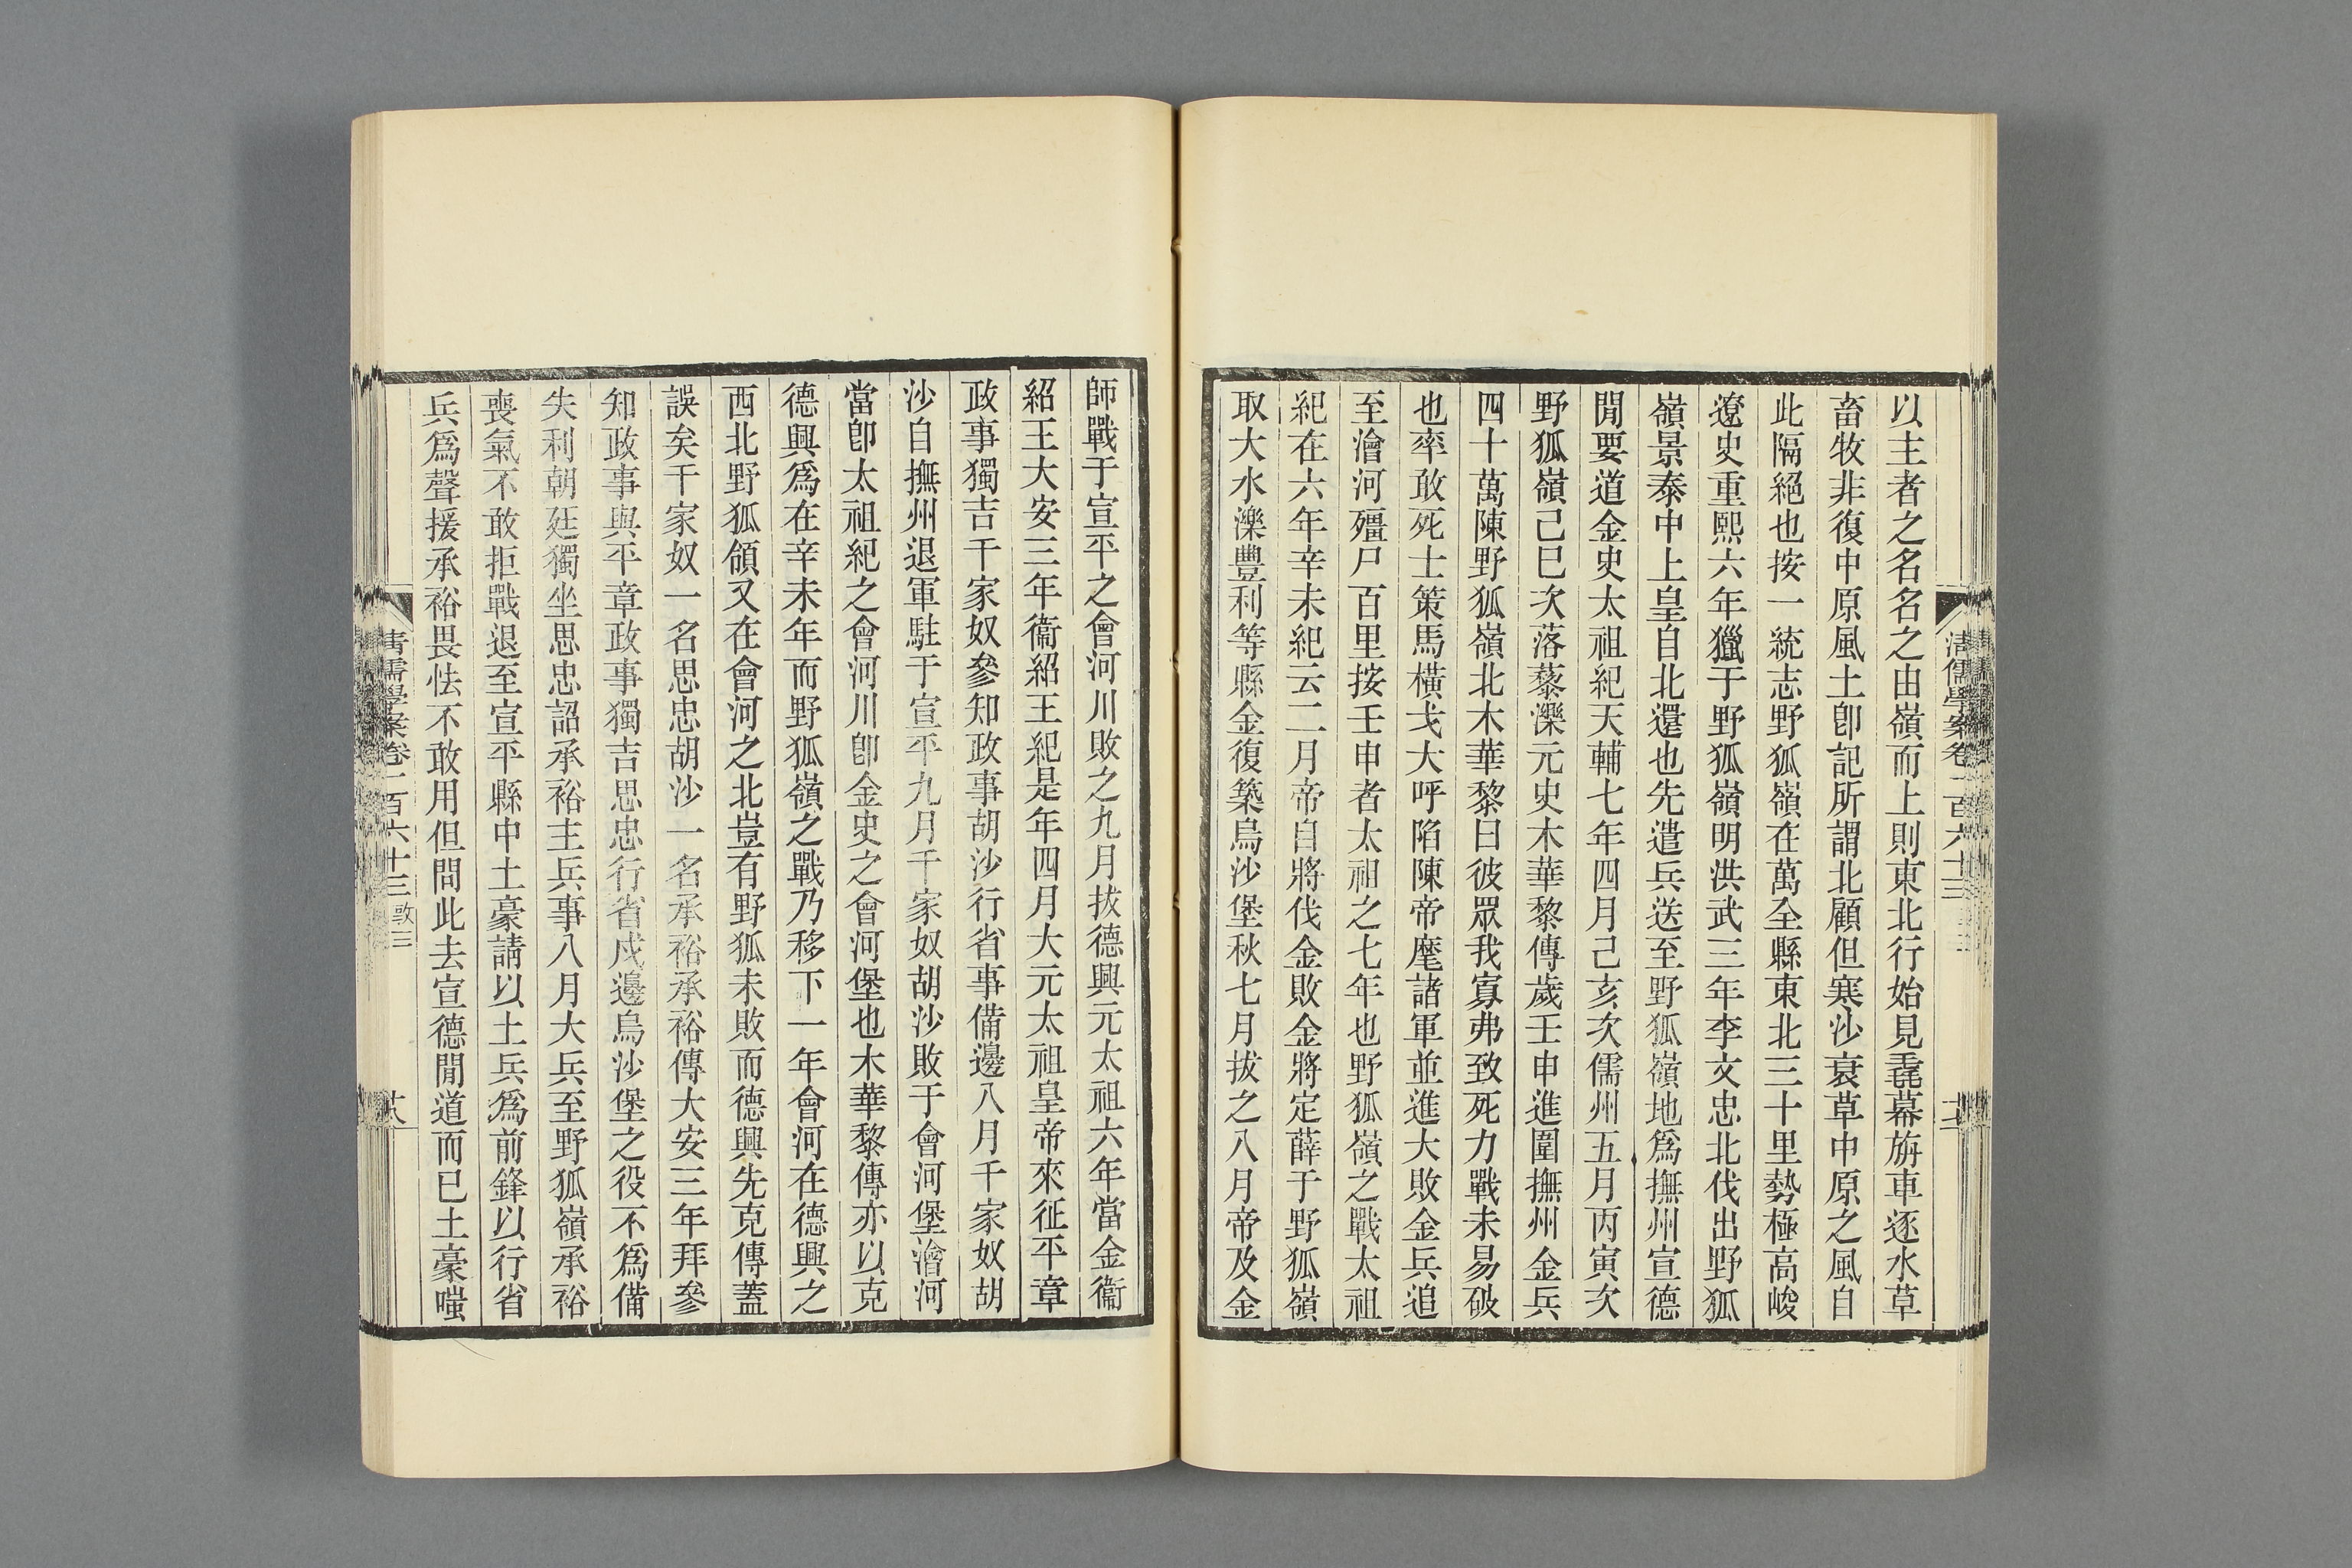 以主者之名名之由嶺而上則東北行始見毳幕旃車逐水草
畜牧非復中原風土卽記所謂北顧但寒沙衰草中原之風自
此隔絕也按一統志野狐嶺在萬全縣東北三十里勢極高峻
遼史重熙六年獵于野狐嶺明洪武三年李文忠北伐出野狐
嶺景泰中上皇自北還也先遣兵送至野狐嶺地爲撫州宣德
閒要道金史太祖紀天輔七年四月己亥次儒州五月丙寅次
野狐嶺己巳次落藜濼元史木華黎傳歲壬申進圍撫州金兵
四十萬陳野狐嶺北木華黎曰彼眾我寡弗致死力戰未易破
也率敢死士策馬橫戈大呼陷陳帝麾諸軍並進大敗金兵追
至澮河殭尸百里按壬申者太祖之七年也野狐嶺之戰太祖
紀在六年辛未紀云二月帝自將伐金敗金將定薛于野狐嶺
取大水濼豐利等縣金復築烏沙堡秋七月拔之八月帝及金
師戰于宣平之會河川敗之九月拔德興元太祖六年當金衞
紹王大安三年衞紹王紀是年四月大元太祖皇帝來征平章
政事獨吉千家奴參知政事胡沙行省事備邊八月千家奴胡
沙自撫州退軍駐于宣平九月千家奴胡沙敗于會河堡澮河
當卽太祖紀之會河川卽金史之會河堡也木華黎傳亦以克
德興爲在辛未年而野狐嶺之戰乃移下一年會河在德興之
西北野狐領又在會河之北豈有野狐未敗而德興先克傳蓋
誤矣千家奴一名思忠胡沙一名承裕承裕傳大安三年拜參
知政事與平章政事獨吉思忠行省戍邊烏沙堡之役不爲備
失利朝廷獨坐思忠詔承裕主兵事八月大兵至野狐嶺承裕
喪氣不敢拒戰退至宣平縣中土豪請以土兵爲前鋒以行省
兵爲聲援承裕畏怯不敢用但問此去宣德閒道而已土豪嗤